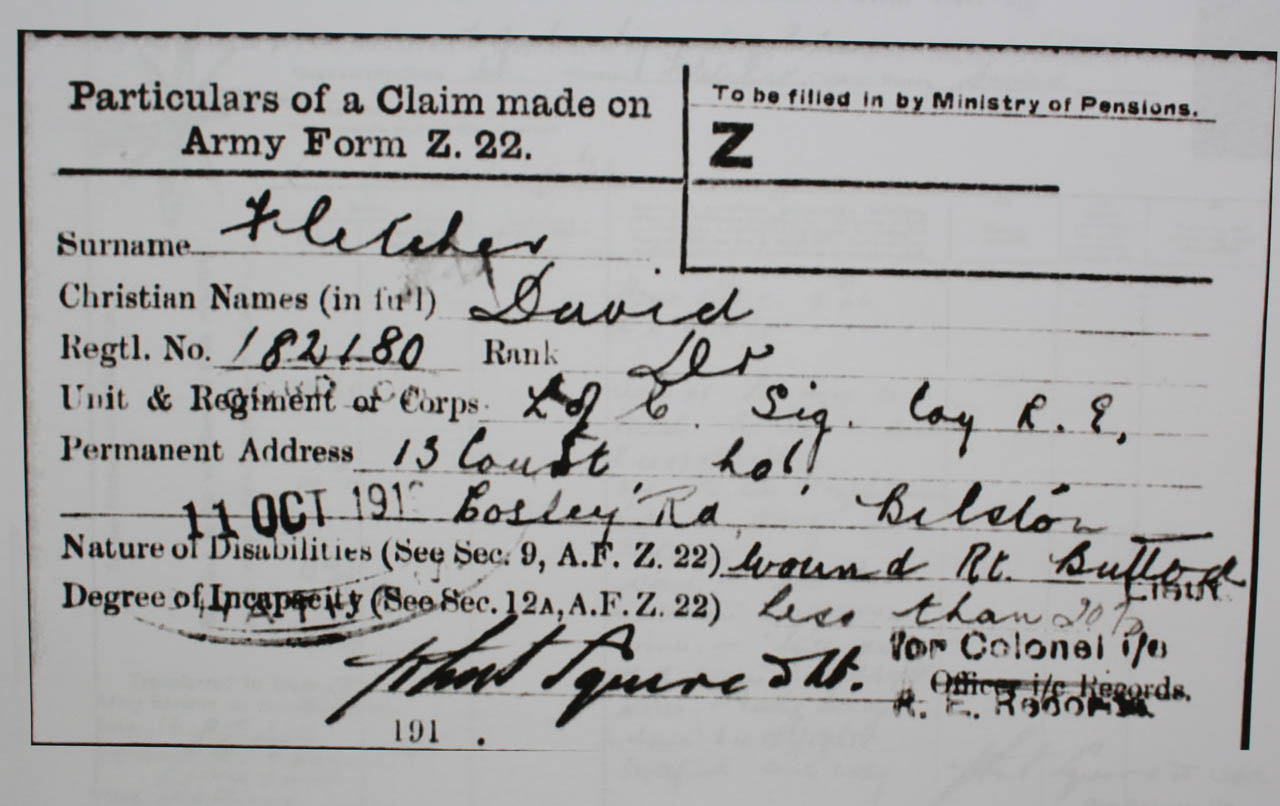 Particulars of a Claim made on
Army Form Z. 22.
To be filled in by Ministry of Pensions.
Z
Surname Fletcher
Christian Names (in full) David
Regtl. No. 182180 Rank
Unit & Regiment or Corps L of C. Sig. Coy R.E,
Permanent Address 13 Court, ho!
11 OCT 191 Rd, Bilston
Nature of Disabilities (See Sec. 9, A.F. Z. 22) Wound Rt. Buttock
Degree of Incapacity (See Sec. 12A, A.F. Z. 22) less than 20%
Squire Lt. for Colonel i/c
Officer i/c Records.
R. E. Records
191 .